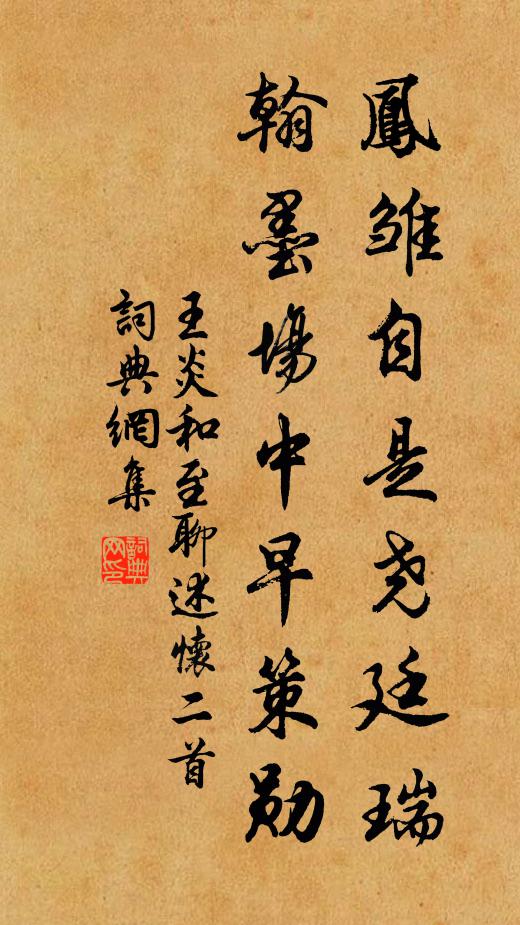 鳳雏自是尧廷瑞
翰墨場中早策勛
王炎和至聊述懷二首
詞典網集
詞典网印